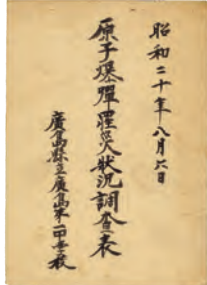 昭和二十年八月六日
原子爆彈罹災狀況調査表
廣島縣立廣島第一中學校